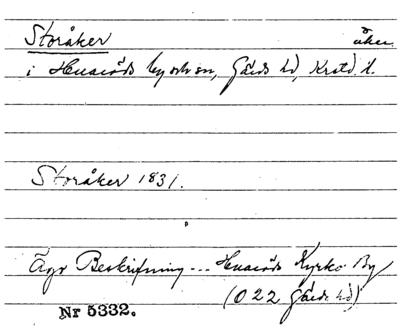 Storåker åker
i Huaröds by och sn, Gärds hd, Krstd. l.
Storåker 1831.
Ägo Beskrifning --- Huaröds Kyrko By
(O 22 Gärds hd)
Nr 5332.